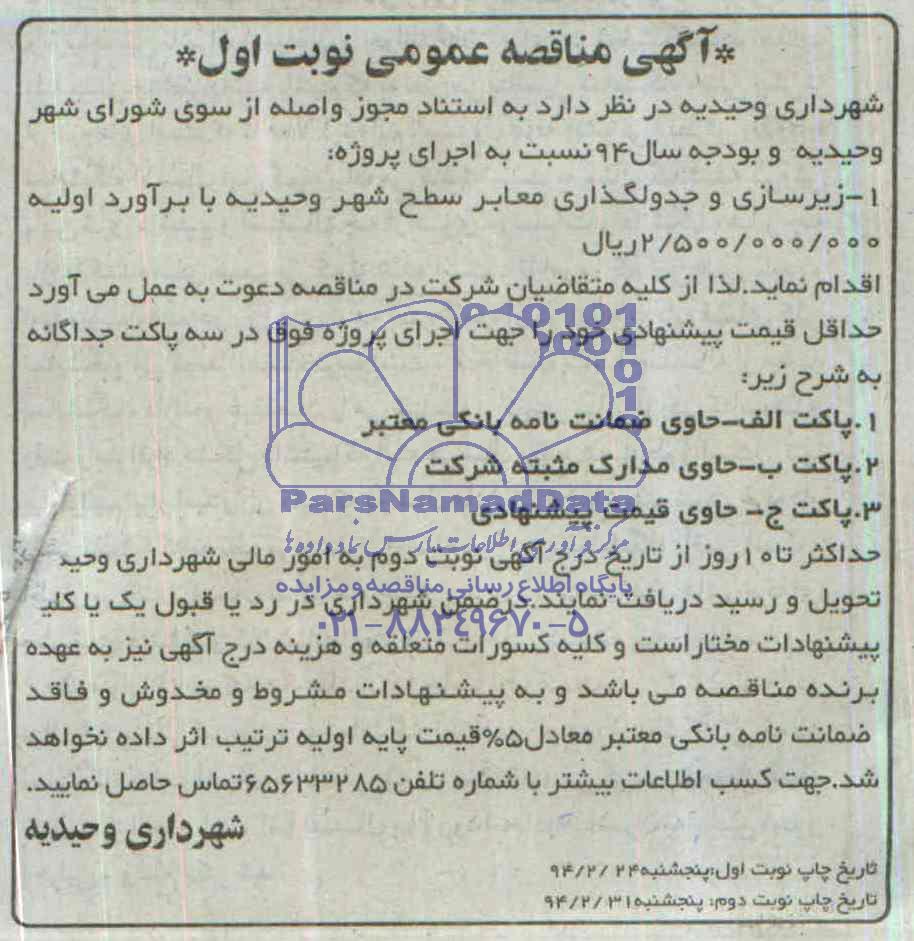 *آگهی مناقصه عمومی نوبت اول*
شهرداری وحیدیه در نظر دارد به استناد مجوز واصله از سوی شورای شهر
وحیدیه و بودجه سال۹۴نسبت به اجرای پروژه:
۱-زیرسازی و جدولگذاری معابر سطح شهر وحیدیه با برآورد اولیه
۲/۵۰۰/۰۰۰/۰۰۰ریال
اقدام نماید.لذا از کلیه متقاضیان شرکت در مناقصه دعوت به عمل می آورد
حداقل قیمت پیشنهادی خود را جهت اجرای پروژه فوق در سه پاکت جداگانه
به شرح زیر:
۱.پاکت الف-حاوی ضمانت نامه بانکی معتبر
۲.پاکت ب-حاوی مدارک مثبته شرکت
ParsNamadData
۳.پاکت ج- حاوی قیمت پیشنهادی
مرکز فرآوری اطلاعات پارس نماد داده ها
حداکثر تا۱۰روز از تاریخ درج آگهی نوبت دوم به امور مالی شهرداری وحید
پایگاه اطلاع رسانی مناقصه و مزایده
تحویل و رسید دریافت نمایند.درضمن شهرداری در رد یا قبول یک یا کلیه
۰۲۱-۸۸۳۴۹۶۷۰-۵
پیشنهادات مختار است و کلیه کسورات متعلقه و هزینه درج آگهی نیز به عهده
برنده مناقصه می باشد و به پیشنهادات مشروط و مخدوش و فاقد
ضمانت نامه بانکی معتبر معادل۵%قیمت پایه اولیه ترتیب اثر داده نخواهد
شد.جهت کسب اطلاعات بیشتر با شماره تلفن ۶۵۶۳۳۲۸۵تماس حاصل نمایید.
شهرداری وحیدیه
تاریخ چاپ نوبت اول:پنجشنبه۹۴/۲/۲۴
تاریخ چاپ نوبت دوم: پنجشنبه۹۴/۲/۳۱